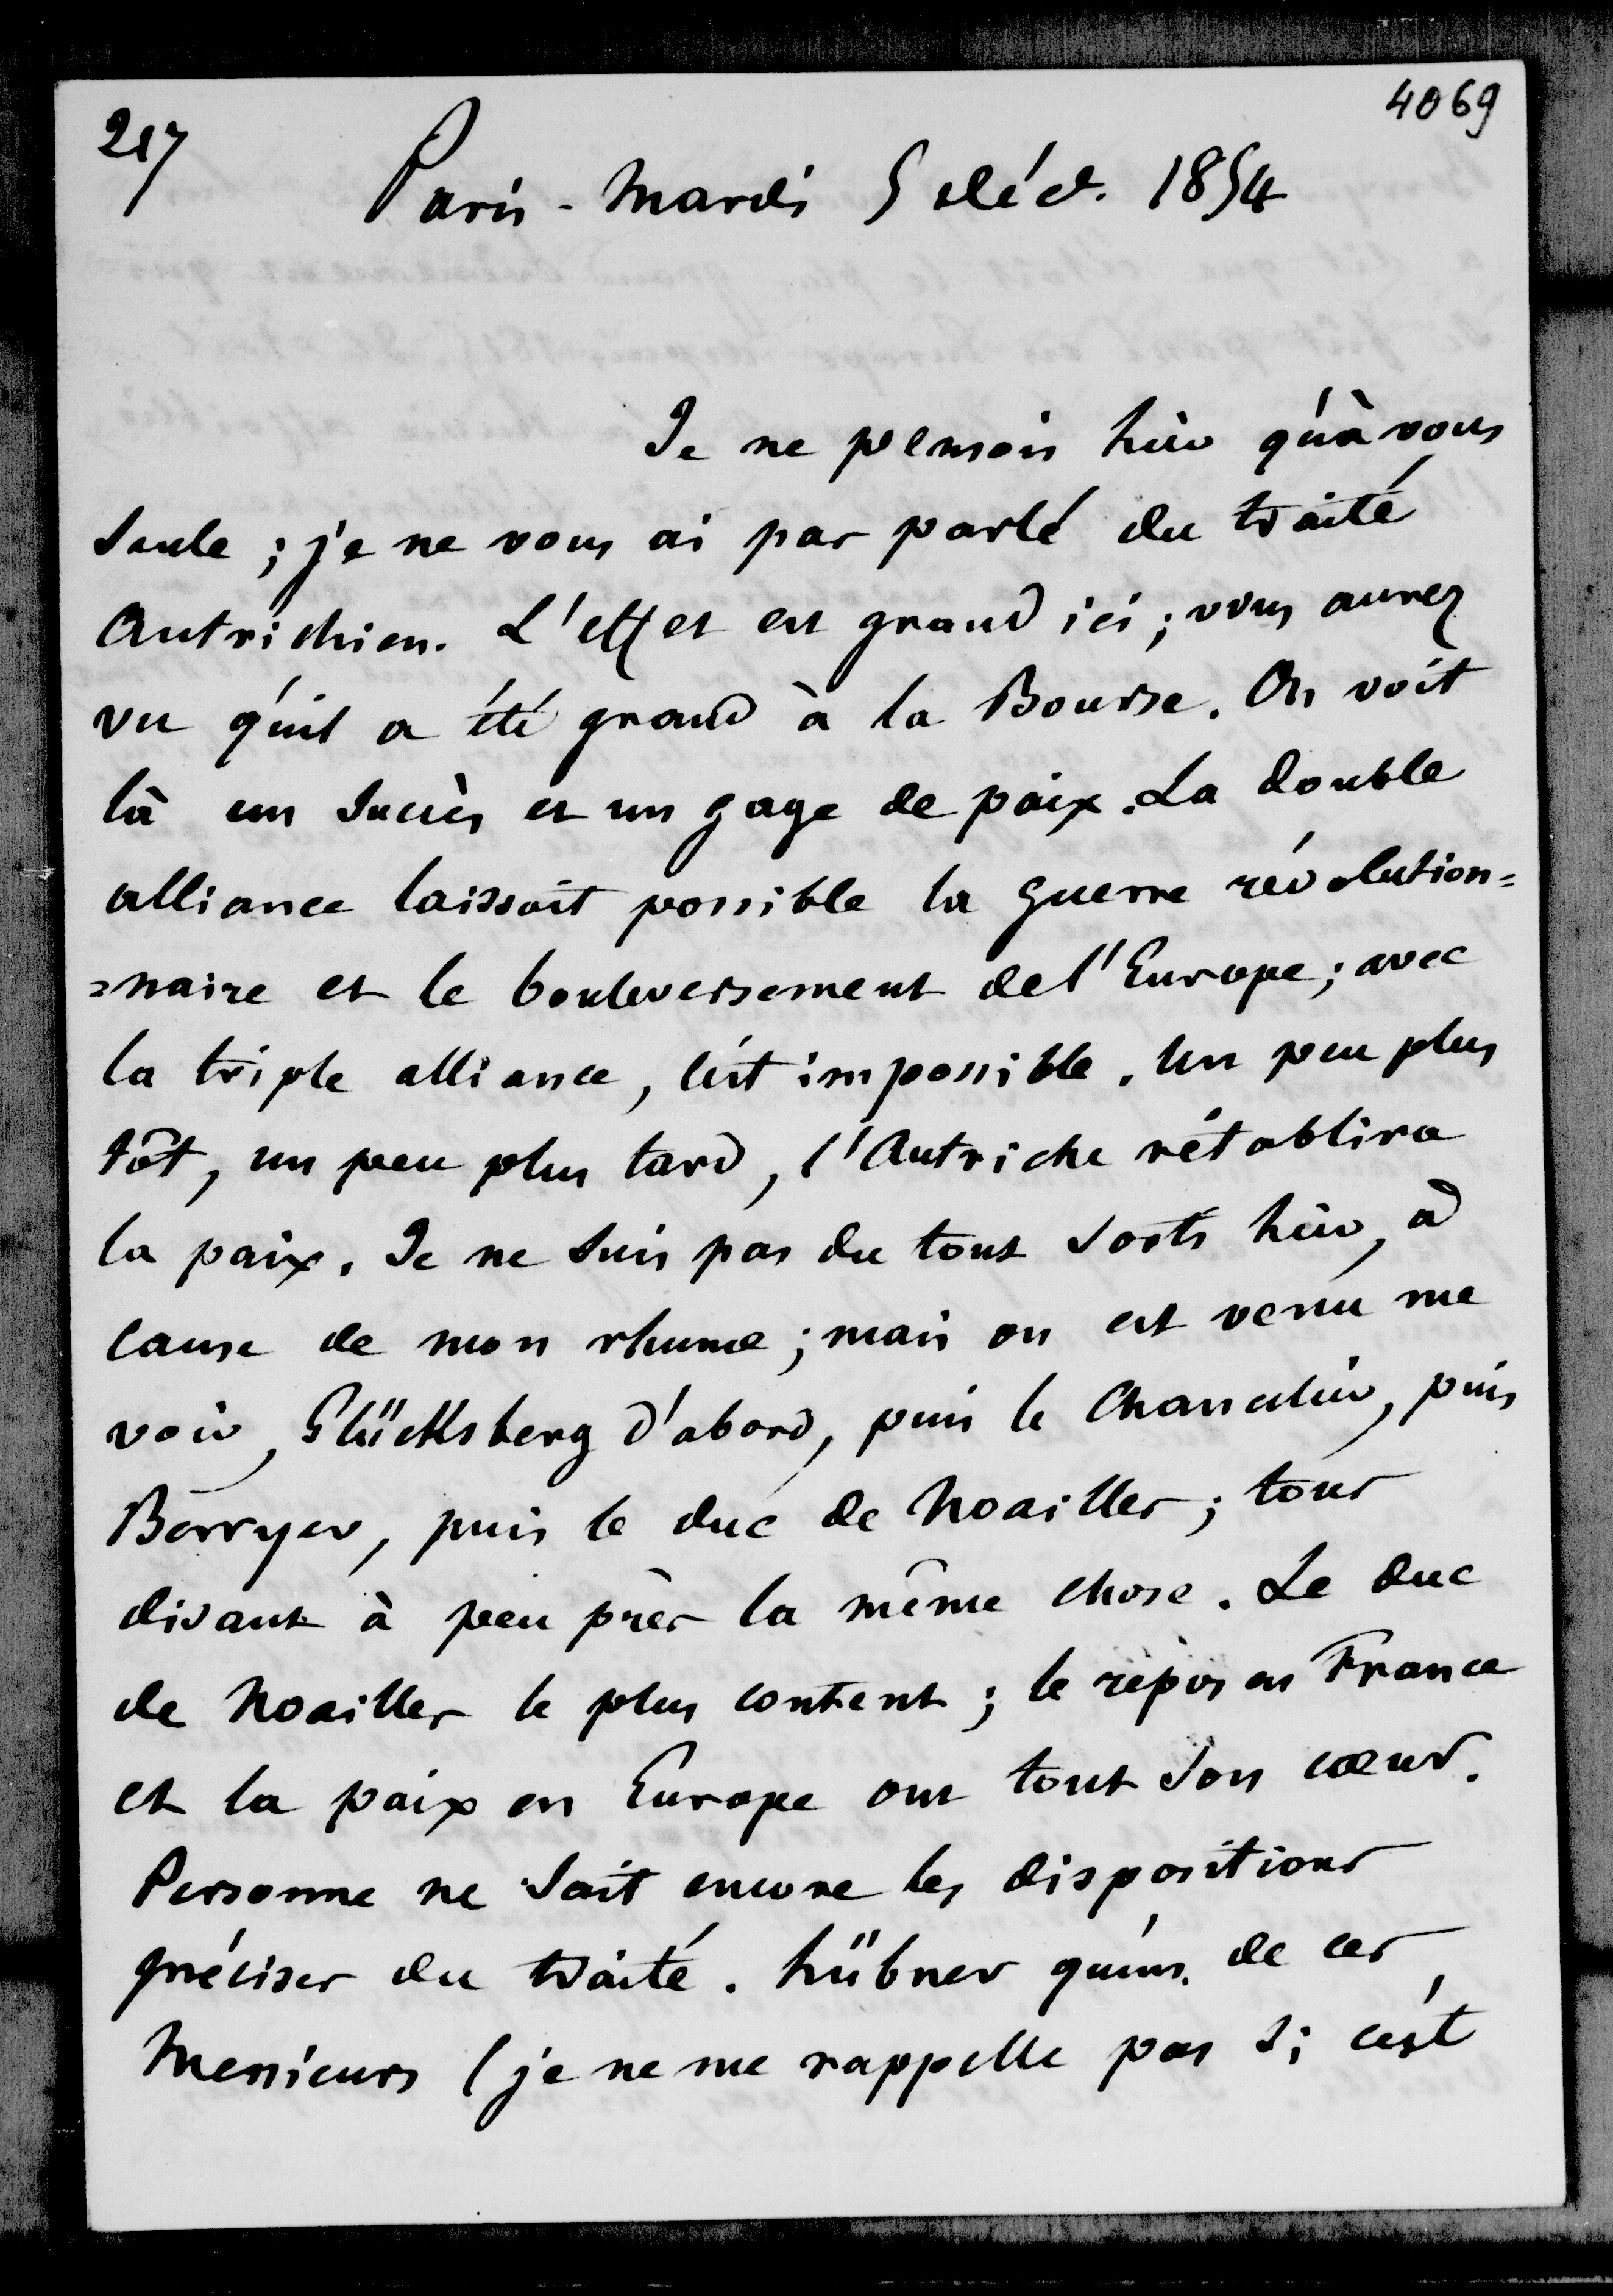 217
4069
Paris - Mardi 5 déc. 1854
Je ne pensois hier qu'à vous
seule ; je ne vous ai pas parlé du traité
Autrichien. L'effet est grand ici ; vous aurez
vu qu'il a été grand à la Bourse. On voit
là un succès et un gage de paix. La double
alliance laissoit possible la guerre révolution=
=naire et le bouleversement de l'Europe ; avec
la triple alliance, c'est impossible. Un peu plus
tôt, un peu plus tard, l'Autriche rétablira
la paix. Je ne suis pas du tout sorti hier, à
cause de mon rhume ; mais on est venu me
voir, Glücksberg d'abord, puis le Chancelier, puis
Berryer, puis le duc de Noailles ; tous
disant à peu près la même chose. Le duc
de Noailles le plus content ; le repos en France
et la paix en Europe ont tout son cœur.
Personne ne sait encore les dispositions
précises du traité. Hübner qu'un de ces
Messieurs (je ne me rappelle pas si c'est